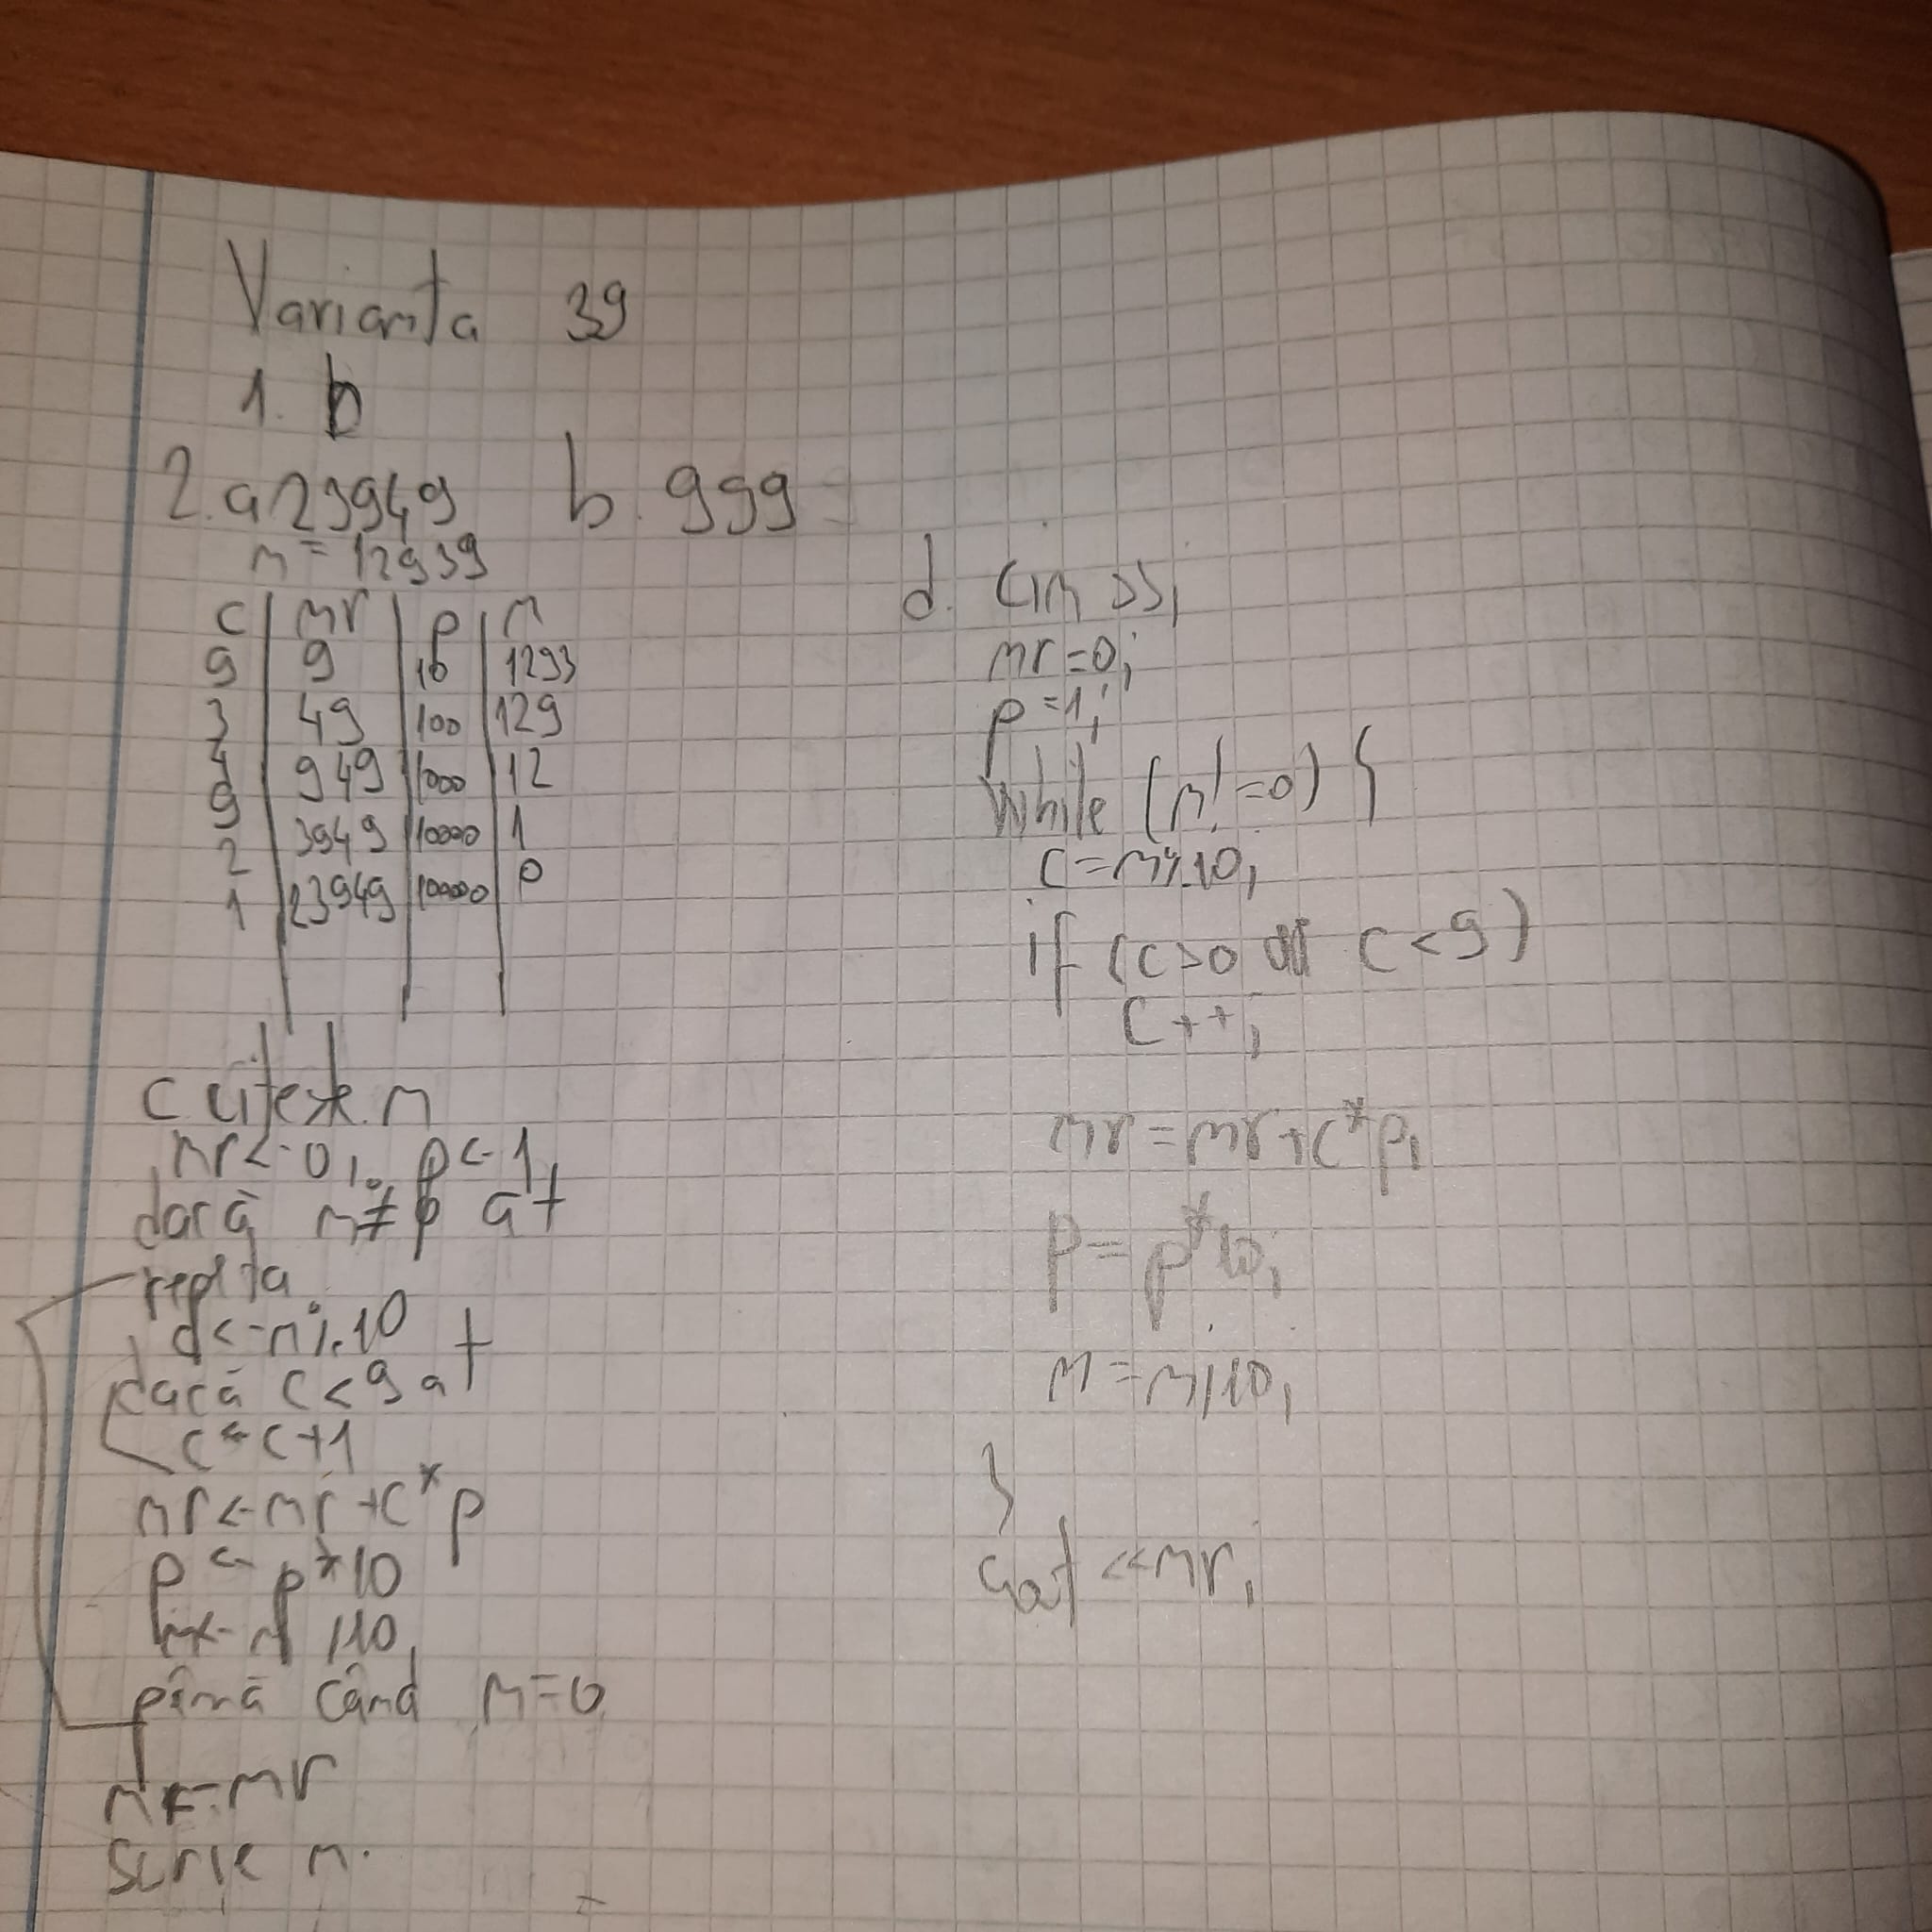 Varianta 39
1. b
2. a 23949 b. 999
n = 12939
c | nr | p | n
9 | 9 | 10 | 1293
3 | 49 | 100 | 129
4 | 949 | 1000 | 12
9 | 3949 | 10000 | 1
2 | 23949 | 10000 | 0
1
c citește n
nr <- 0, p <- 1
dacă n ≠ 0 at
repetă
c <- n % 10
dacă c < 9 at
c <- c + 1
nr <- nr + c * p
p <- p * 10
n <- n / 10
până când n = 0
n <- nr
scrie n.
d. cin >>,
nr = 0;
p = 1;
while (n != 0) {
c = n % 10;
if (c > 0 c < 9)
c++;
nr = nr + c * p;
p = p * 10;
n = n / 10;
}
cout << nr;